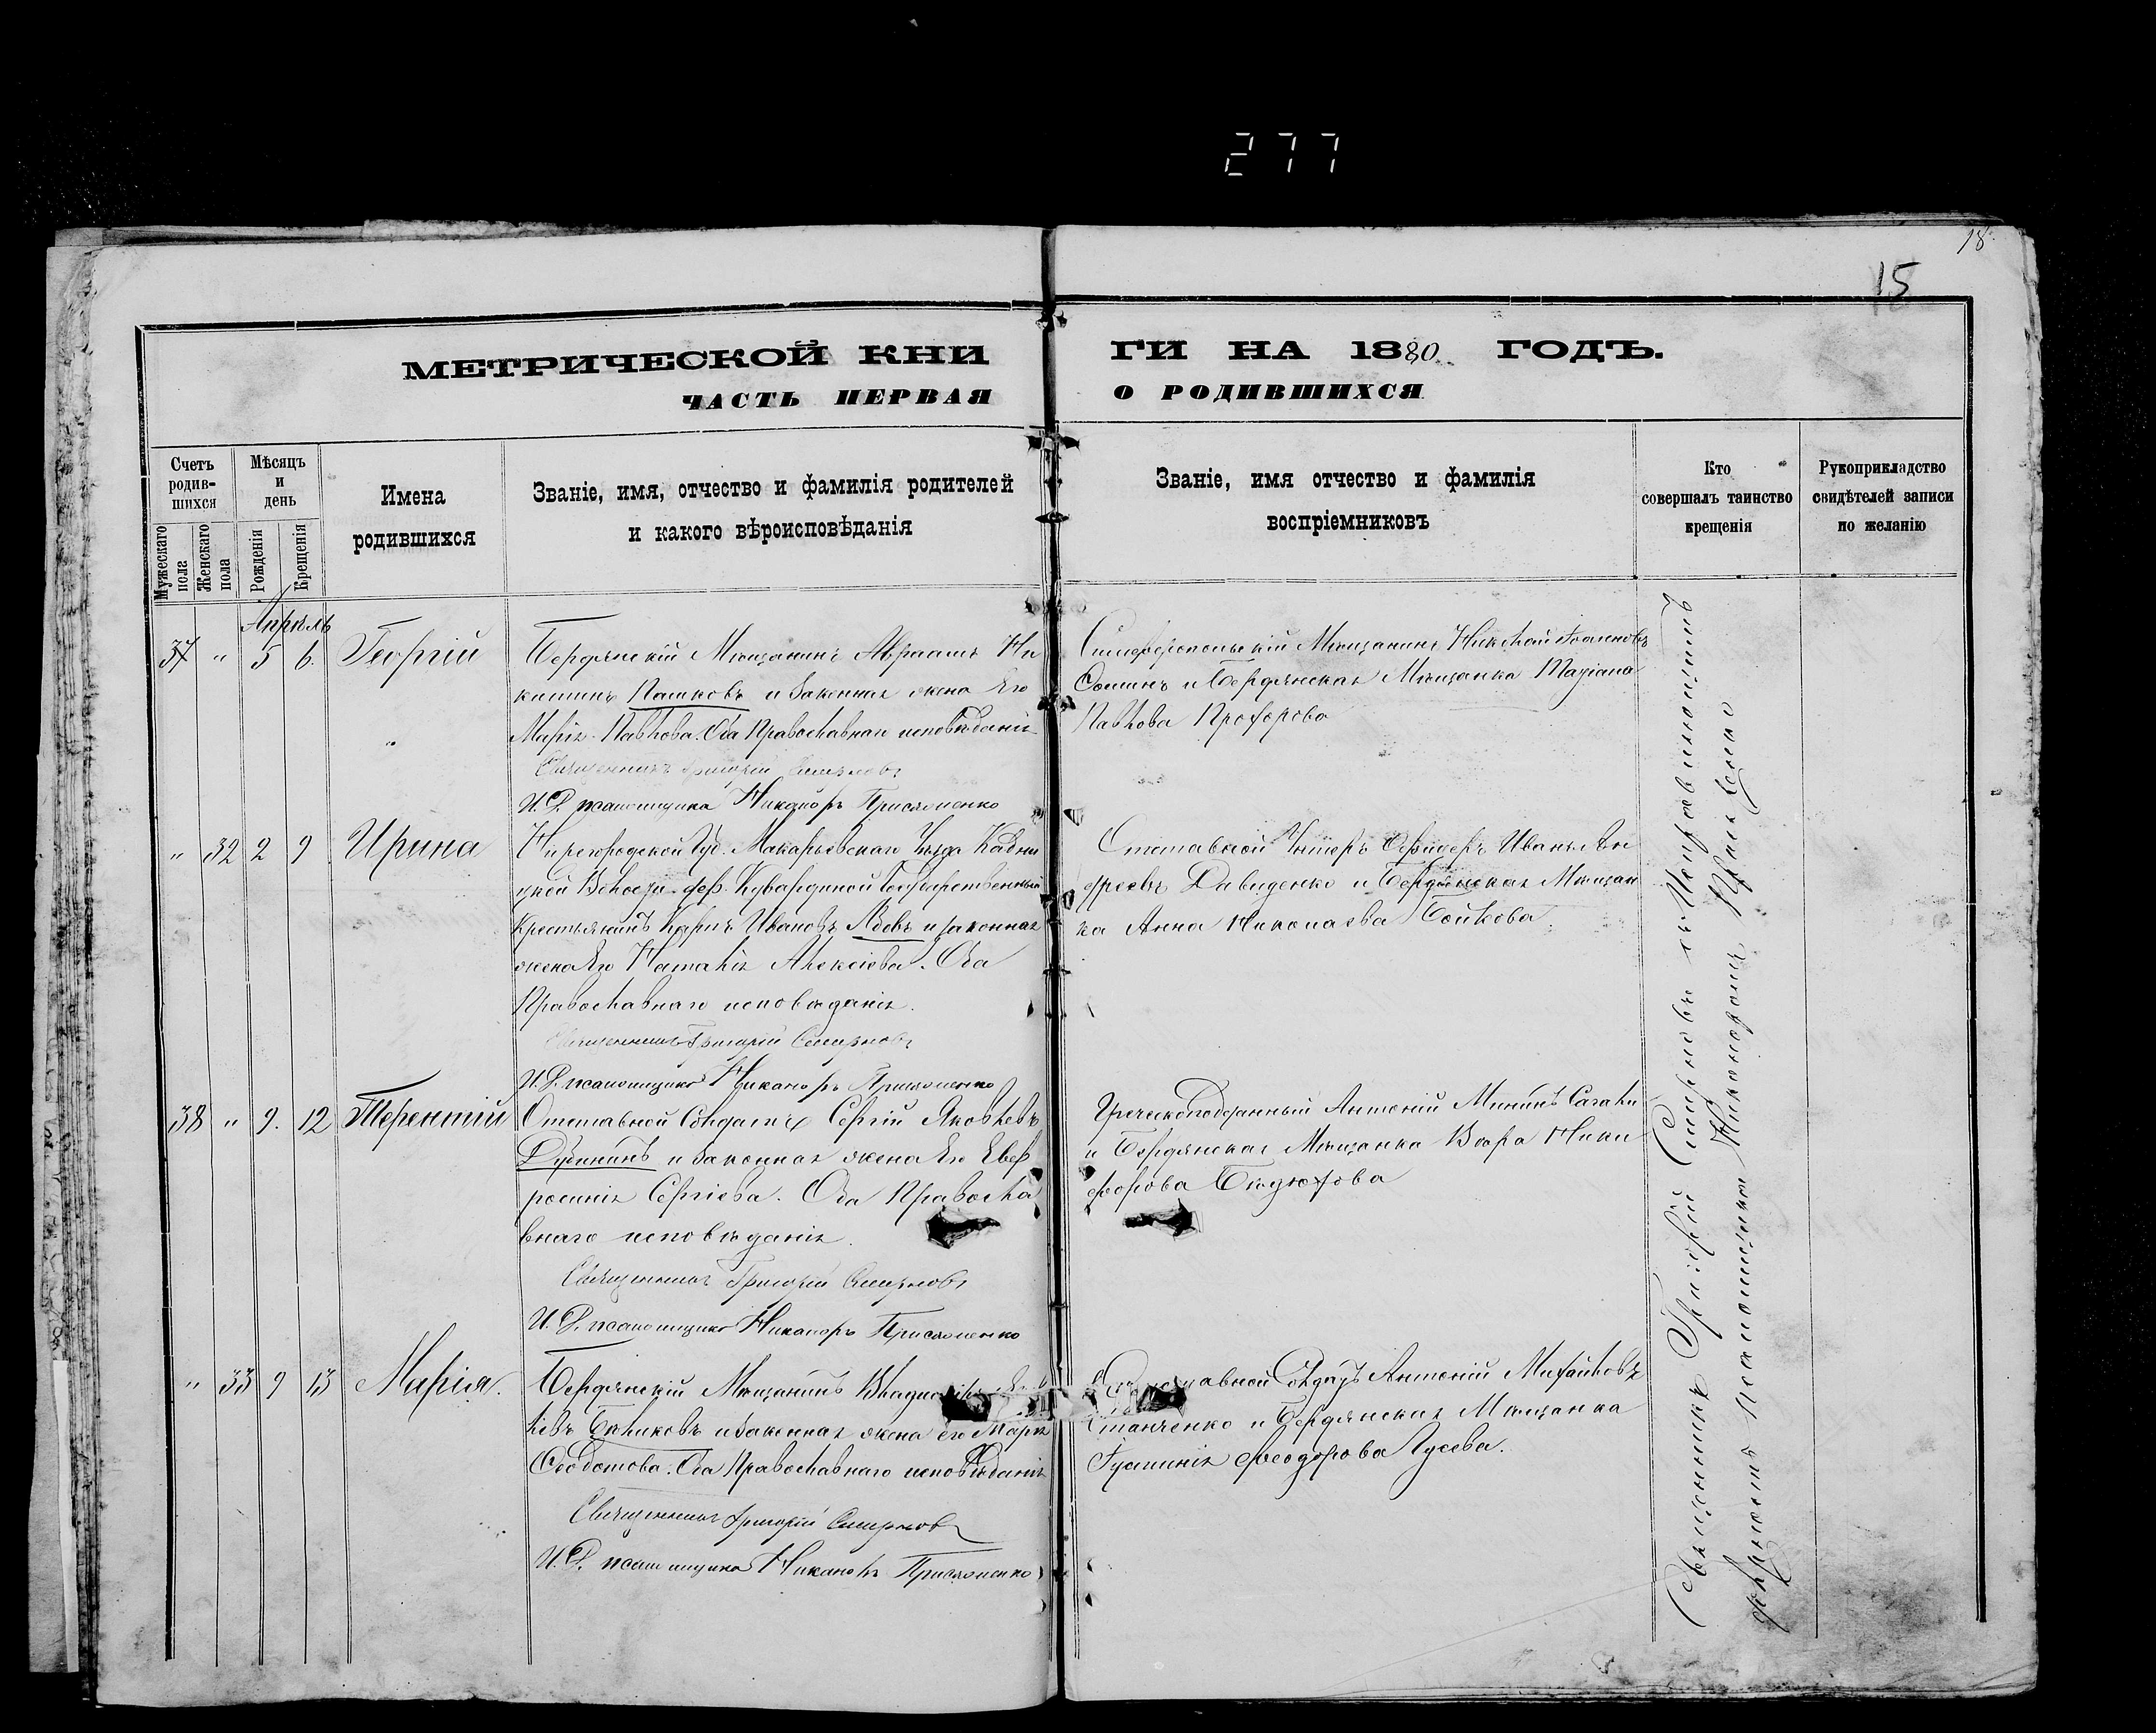 277
18
15
МЕТРИЧЕСКОЙ КНИ ГИ НА 1880 ГОДЪ.
ЧАСТЬ ПЕРВАЯ О РОДИВШИХСЯ
Счетъ родив-шихся
Мужескаго пола
Женскаго пола
Мѣсяцъ и день
Рожденія
Крещенія
Имена родившихся
Званіе, имя, отчество и фамилія родителей
и какого вѣроисповѣданія
Званіе, имя отчество и фамилія
воспріемниковъ
Кто
совершалъ таинство
крещенія
Рукоприкладство
свидѣтелей записи
по желанію
Апрѣль
37 " 5 6. Георгій
Бердянскій Мѣщанинъ Авраамъ Ни
китинъ Пашковъ и законная жена Его
Марія Павлова. Оба Православнаго исповѣданія
Священникъ Григорій Смирновъ
И. Д. псаломщика Никаноръ Присяженко
Симферопольскій Мѣщанинъ Николай Іоанновъ
Соминъ и Бердянская Мѣщанка Маріана
Павлова Прохорова
" 32 2 9 Ирина
Нижегородской Губ. Макарьевскаго Уѣзда
Волости дер. Государственный
Крестьянинъ Ивановъ и законная
жена Его Наталія Алексіева. Оба
Православнаго исповѣданія.
Священникъ Григорій Смирновъ
И. Д. псаломщика Никаноръ Присяженко
Отставной Унтеръ Офицеръ Иванъ Ан
дреевъ Давиденко и Бердянская Мѣщан
ка Анна Николаева Бойкова.
38 " 9. 12 Терентій
Отставной Солдатъ Сергій Яковлевъ
Дубининъ и законная жена Его Евф
росинія Сергіева. Оба Правосла
внаго исповѣданія.
Священникъ Григорій Смирновъ
И. Д. псаломщика Никаноръ Присяженко
Греческоподданный Антоній Мининъ
и Бердянская Мѣщанка Вѣра Ники
форова
" 33 9 13 Марія.
Бердянскій Мѣщанинъ
левъ и законная жена его Марія
Ѳеодотова. Оба Православнаго исповѣданія
Священникъ Григорій Смирновъ
И. Д. псаломщика Никаноръ Присяженко
Отставной Солдатъ Антоній Михайловъ
Степченко и Бердянская Мѣщанка
Іустинія Феодорова Гусева.
Священникъ Григорій Смирновъ съ Исправляющимъ
должность псаломщика Никаноромъ Присяженко